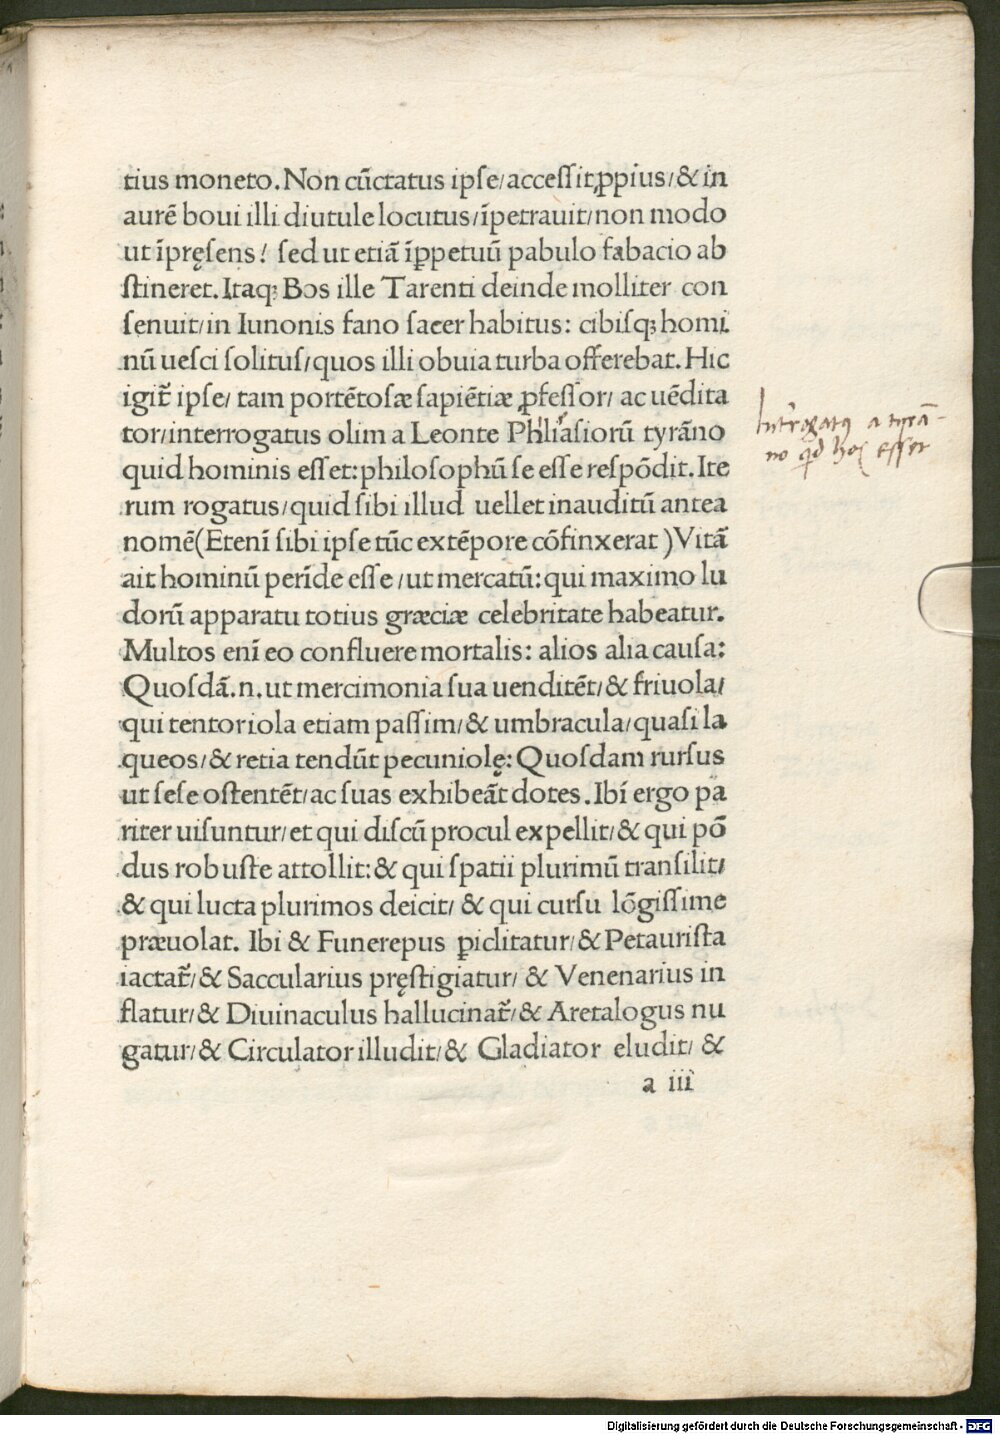 tius moneto. Non cūctatus ipſe/acceſſit ꝓpius/& in
aurē boui illi diutule locutus/īpetrauit/non modo
ut īpręſens! ſed ut etiā īꝑpetuū pabulo fabacio ab
ſtineret. Itaqꝫ Bos ille Tarenti deinde molliter con
ſenuit/in Iunonis fano ſacer habitus: cibiſqꝫ homi
nū ueſci ſolitus/quos illi obuia turba offerebat. Hic
igit᷑ ipſe/ tam portētoſæ ſapiētiæ ꝓfeſſor/ ac uēdita
tor/interrogatus olim a Leonte Phliaſiorū tyrāno
quid hominis eſſet: philoſophū ſe eſſe reſpōdit. Ite
rum rogatus/quid ſibi illud uellet inauditū antea
nomē(Etenī ſibi ipſe tūc extēpore cōfinxerat) Vitā
ait hominū perīde eſſe/ut mercatū: qui maximo lu
dorū apparatu totius græciæ celebritate habeatur.
Multos enī eo confluere mortalis: alios alia cauſa:
Quoſdā .n. ut mercimonia ſua uenditēt/& friuola/
qui tentoriola etiam paſſim/& umbracula/quaſi la
queos/& retia tendūt pecuniolę: Quoſdam rurſus
ut ſeſe oſtentēt/ac ſuas exhibeāt dotes. Ibi ergo pa
riter uiſuntur/et qui diſcū procul expellit/& qui pō
dus robuſte attollit: & qui ſpatii plurimū tranſilit/
& qui lucta plurimos deicit/ & qui curſu lōgiſſime
præuolat. Ibi & Funerepus ꝑiditatur/& Petauriſta
iactat᷑/& Saccularius pręſtigiatur/ & Venenarius in
flatur/& Diuinaculus hallucinat᷑/& Aretalogus nu
gatur/& Circulator illudit/& Gladiator eludit/ &
a iii
Int̄rogatꝰ a tyrā-
no qd hoı̄ eſſet
Digitalisierung gefördert durch die Deutsche Forschungsgemeinschaft - DFG